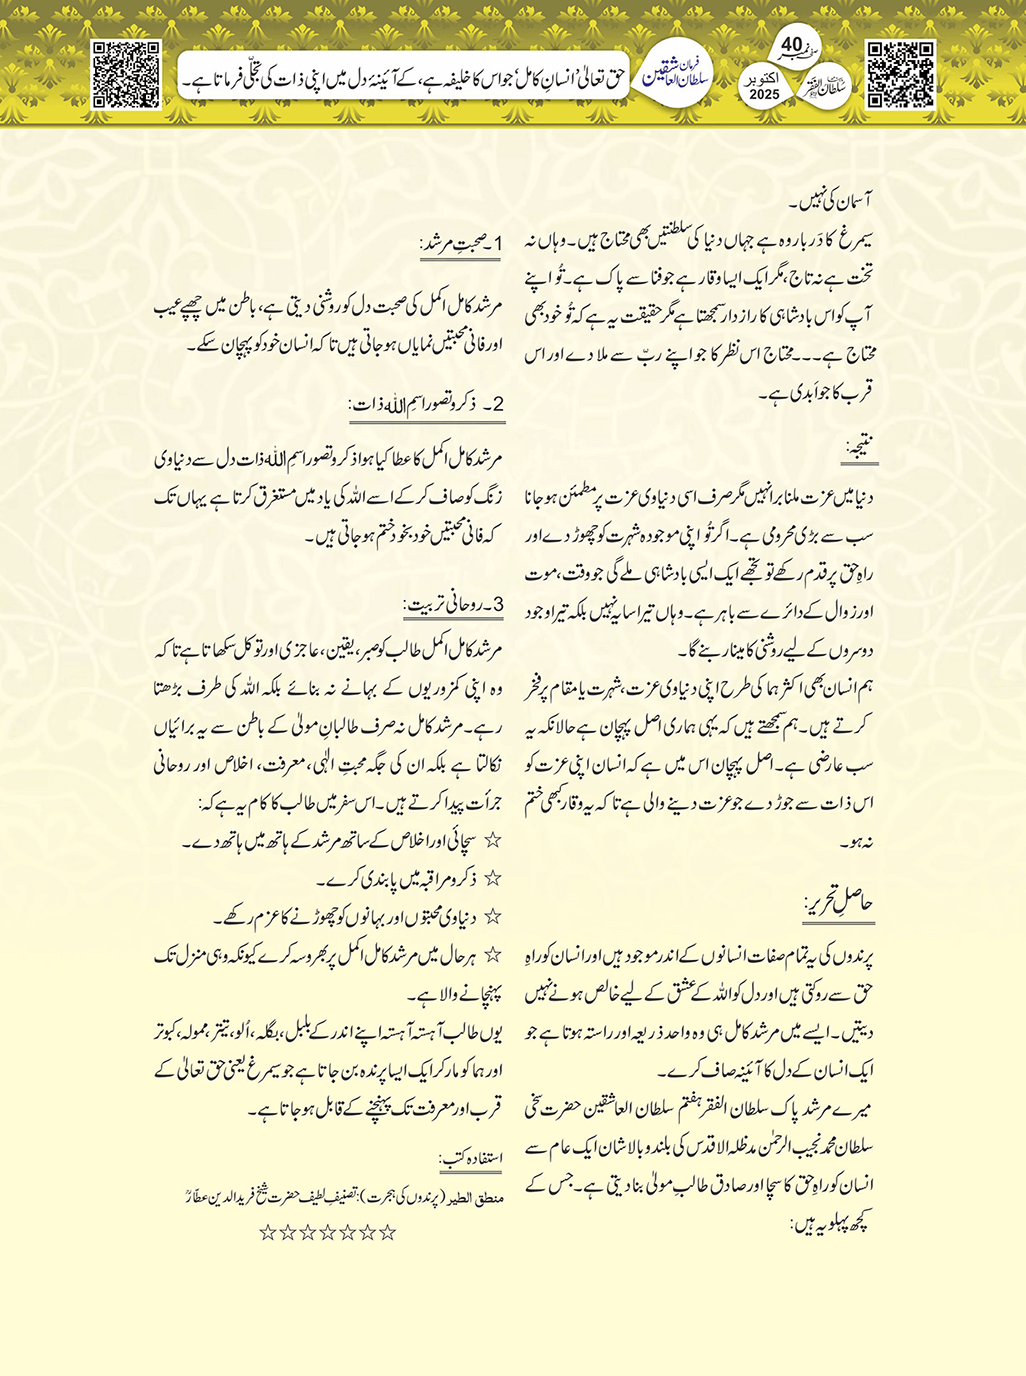 صفحہ نمبر 40
ماہنامہ سلطان الفقر لاہور
اکتوبر
2025
فرمان سلطان العاشقین
حق تعالیٰ 'انسانِ کامل' جو اس کا خلیفہ ہے، کے آئینۂ دل میں اپنی ذات کی تجلّی فرماتا ہے۔
آسمان کی نہیں۔
سیمرغ کا دَربار وہ ہے جہاں دنیا کی سلطنتیں بھی محتاج ہیں۔ وہاں نہ
تخت ہے نہ تاج، مگر ایک ایسا وقار ہے جو فنا سے پاک ہے۔ تُو اپنے
آپ کو اس بادشاہی کا رازدار سمجھتا ہے مگر حقیقت یہ ہے کہ تُو خود بھی
محتاج ہے۔۔۔محتاج اس نظر کا جو اپنے ربّ سے ملا دے اور اس
قرب کا جو اَبدی ہے۔
نتیجہ:
دنیا میں عزت ملنا برا نہیں مگر صرف اسی دنیاوی عزت پر مطمئن ہو جانا
سب سے بڑی محرومی ہے۔ اگر تُو اپنی موجودہ شہرت کو چھوڑ دے اور
راہِ حق پر قدم رکھے تو تجھے ایک ایسی بادشاہی ملے گی جو وقت، موت
اور زوال کے دائرے سے باہر ہے۔ وہاں تیرا سایہ نہیں بلکہ تیرا وجود
دوسروں کے لیے روشنی کا مینار بنے گا۔
ہم انسان بھی اکثر ہما کی طرح اپنی دنیاوی عزت، شہرت یا مقام پر فخر
کرتے ہیں۔ ہم سمجھتے ہیں کہ یہی ہماری اصل پہچان ہے حالانکہ یہ
سب عارضی ہے۔ اصل پہچان اس میں ہے کہ انسان اپنی عزت کو
اس ذات سے جوڑ دے جو عزت دینے والی ہے تاکہ یہ وقار کبھی ختم
نہ ہو۔
حاصلِ تحریر:
پرندوں کی یہ تمام صفات انسانوں کے اندر موجود ہیں اور انسان کو راہِ
حق سے روکتی ہیں اور دل کو اللہ کے عشق کے لیے خالص ہونے نہیں
دیتیں۔ ایسے میں مرشد کامل ہی وہ واحد ذریعہ اور راستہ ہوتا ہے جو
ایک انسان کے دل کا آئینہ صاف کرے۔
میرے مرشد پاک سلطان الفقر ہفتم سلطان العاشقین حضرت سخی
سلطان محمد نجیب الرحمٰن مدظلہ الاقدس کی بلند و بالا شان ایک عام سے
انسان کو راہِ حق کا سچا اور صادق طالبِ مولیٰ بنا دیتی ہے۔ جس کے
کچھ پہلو یہ ہیں:
1۔صحبتِ مرشد:
مرشد کامل اکمل کی صحبت دل کو روشنی دیتی ہے، باطن میں چھپے عیب
اور فانی محبتیں نمایاں ہو جاتی ہیں تاکہ انسان خود کو پہچان سکے۔
2۔ ذکر و تصور اسمِ اللہ ذات:
مرشد کامل اکمل کا عطا کیا ہوا ذکر و تصور اسمِ اللہ ذات دل سے دنیاوی
زنگ کو صاف کر کے اسے اللہ کی یاد میں مستغرق کرتا ہے یہاں تک
کہ فانی محبتیں خود بخود ختم ہو جاتی ہیں۔
3۔روحانی تربیت:
مرشد کامل اکمل طالب کو صبر، یقین، عاجزی اور توکل سکھاتا ہے تاکہ
وہ اپنی کمزوریوں کے بہانے نہ بنائے بلکہ اللہ کی طرف بڑھتا
رہے۔ مرشد کامل نہ صرف طالبانِ مولیٰ کے باطن سے یہ برائیاں
نکالتا ہے بلکہ ان کی جگہ محبتِ الٰہی، معرفت، اخلاص اور روحانی
جرأت پیدا کرتے ہیں۔ اس سفر میں طالب کا کام یہ ہے کہ:
☆ سچائی اور اخلاص کے ساتھ مرشد کے ہاتھ میں ہاتھ دے۔
☆ ذکر و مراقبہ میں پابندی کرے۔
☆ دنیاوی محبتوں اور بہانوں کو چھوڑنے کا عزم رکھے۔
☆ ہر حال میں مرشد کامل اکمل پر بھروسہ کرے کیونکہ وہی منزل تک
پہنچانے والا ہے۔
یوں طالب آہستہ آہستہ اپنے اندر کے بلبل، بگلہ، اُلو، تیتر، ممولہ، کبوتر
اور ہما کو مار کر ایک ایسا پرندہ بن جاتا ہے جو سیمرغ یعنی حق تعالیٰ کے
قرب اور معرفت تک پہنچنے کے قابل ہو جاتا ہے۔
استفادہ کتب:
منطق الطیر (پرندوں کی ہجرت): تصنیفِ لطیف حضرت شیخ فرید الدین عطارؒ
☆☆☆☆☆☆☆